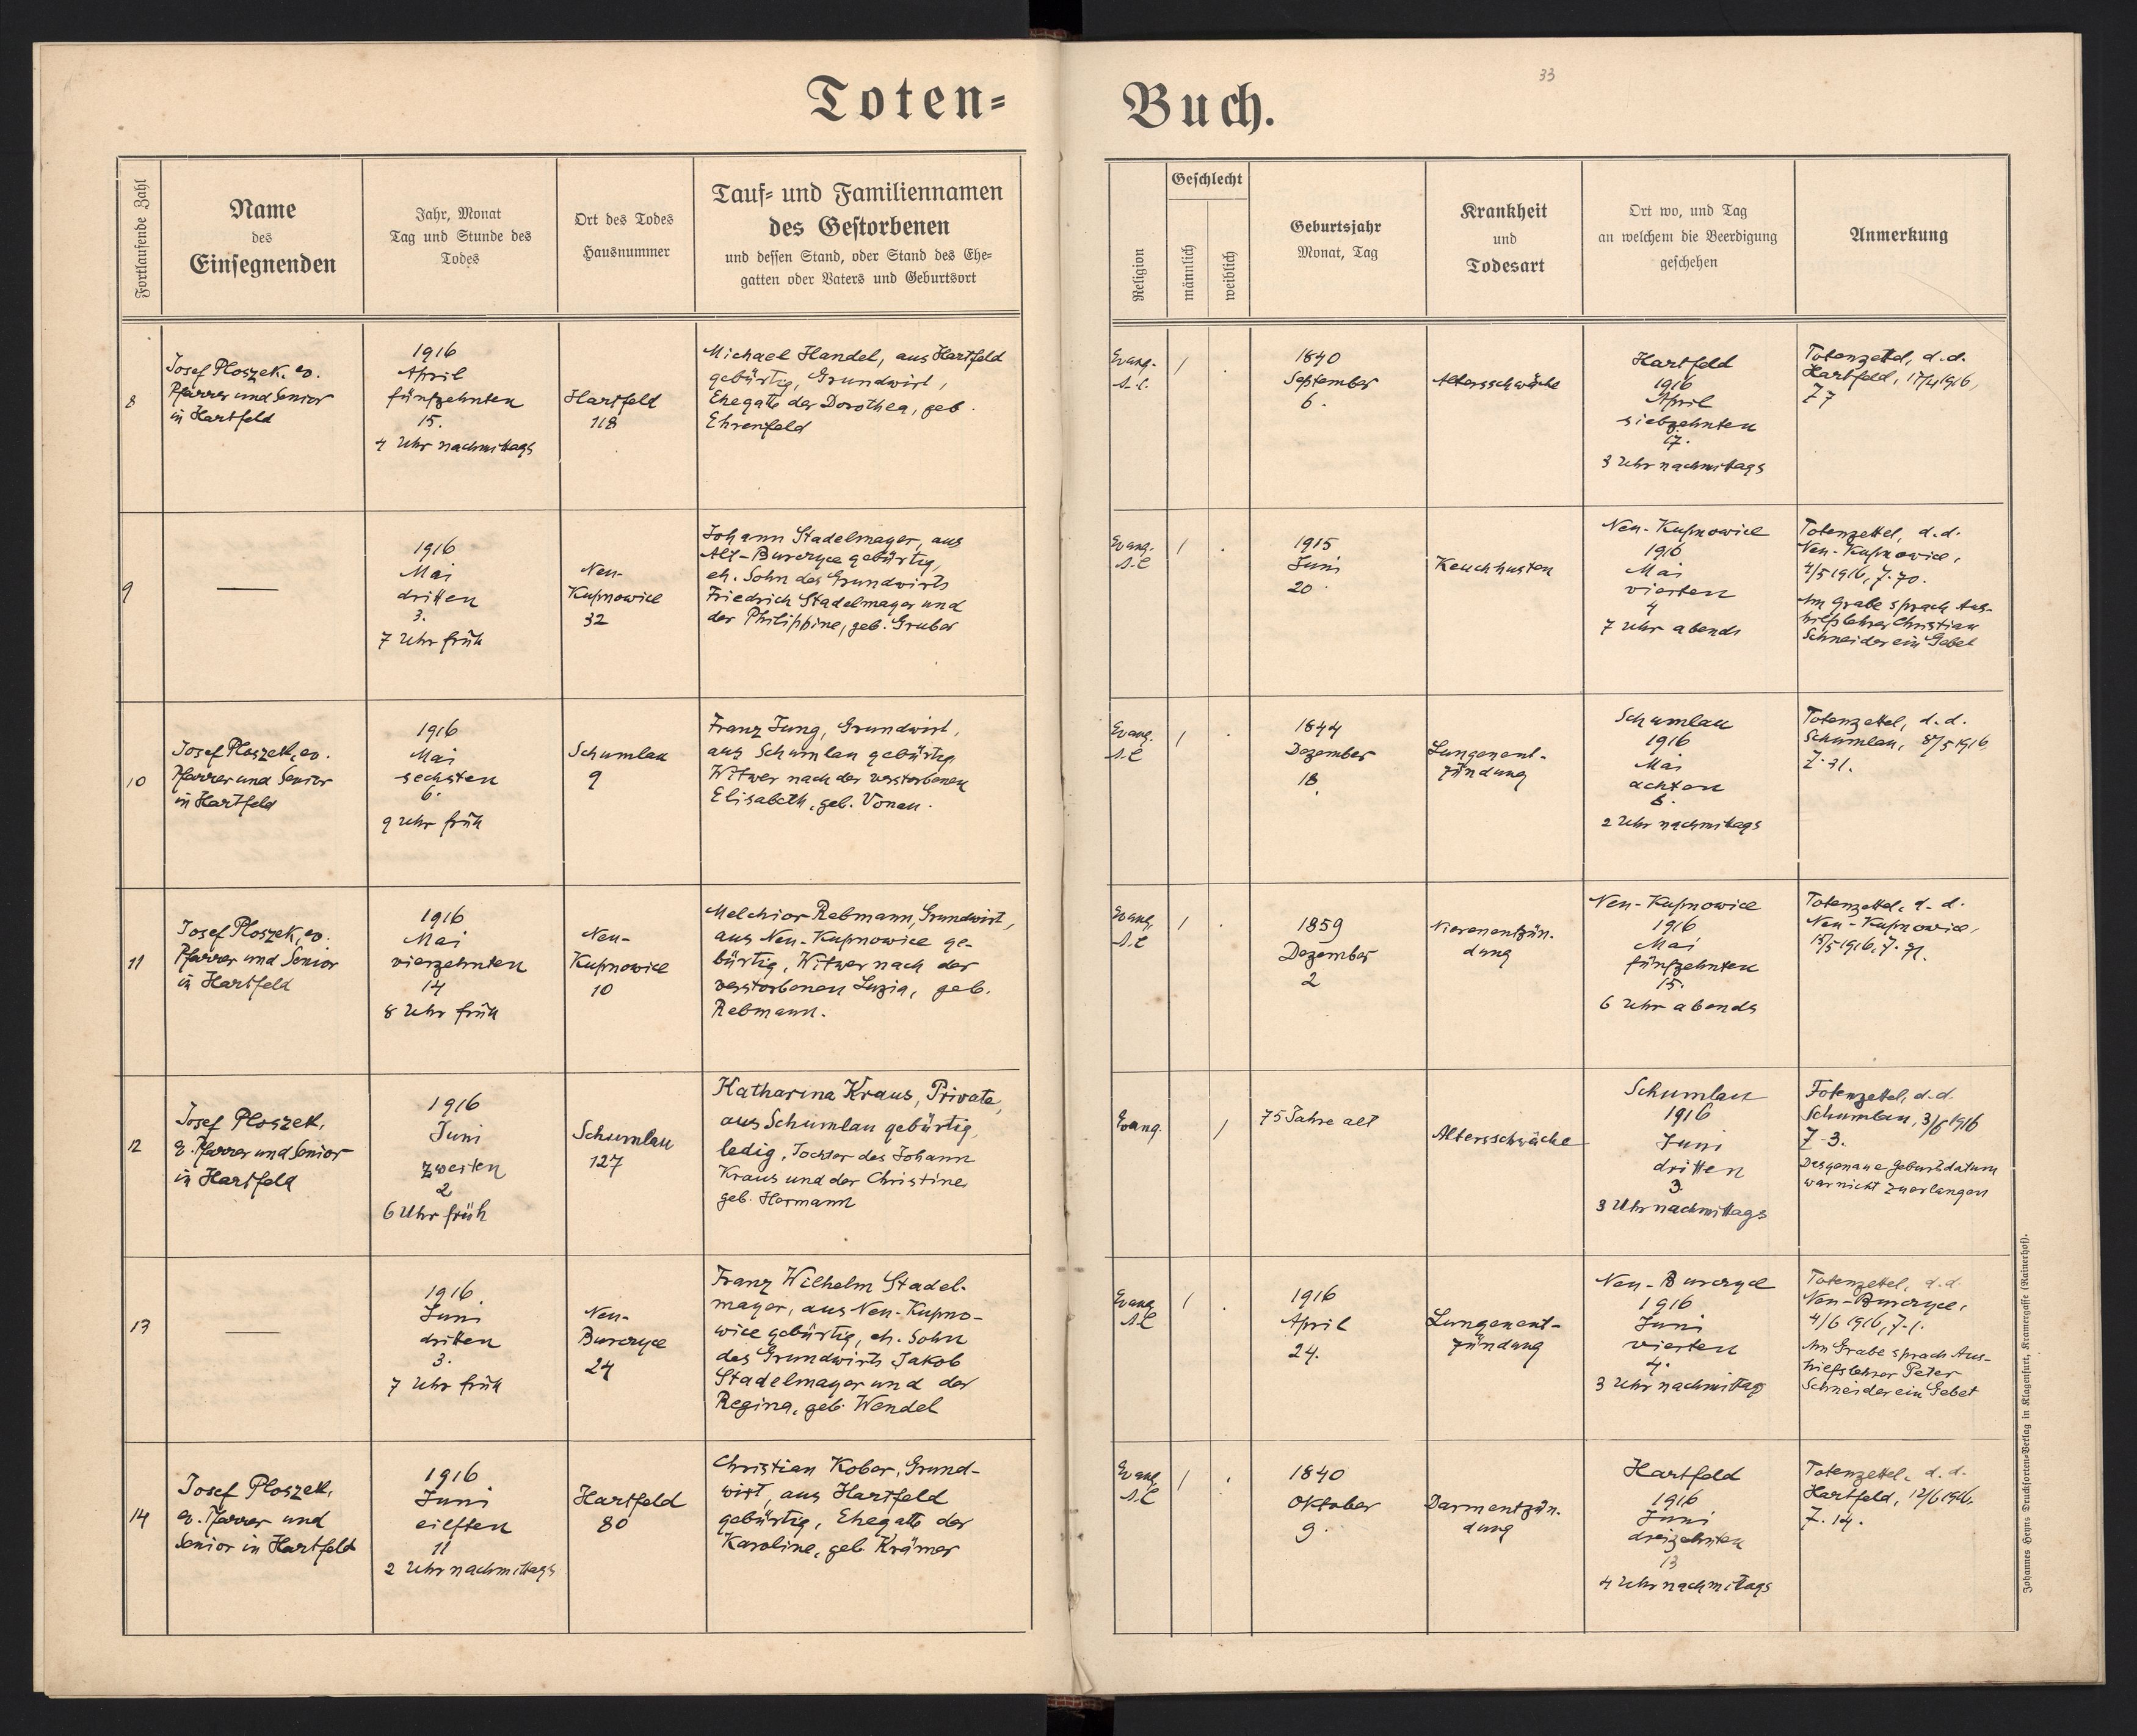 Toten=
Buch.
33
Fortlaufende Zahl
Name
des
Einsegnenden
Jahr, Monat
Tag und Stunde des
Todes
Ort des Todes
Hausnummer
Tauf= und Familiennamen
des Gestorbenen
und dessen Stand, oder Stand des Ehe=
gatten oder Vaters und Geburtsort
Religion
Geschlecht
männlich
weiblich
Geburtsjahr
Monat, Tag
Krankheit
und
Todesart
Ort wo, und Tag
an welchem die Beerdigung
geschehen
Anmerkung
8
Josef Ploszek, ev.
Pfarrer und Senior
in Hartfeld
1916
April
fünfzehnten
15.
4 Uhr nachmittags
Hartfeld
118
Michael Handel, aus Hartfeld
gebürtig, Grundwirt,
Ehegatte der Dorothea, geb.
Ehrenfeld
Evang.
A.C.
/
.
1840
September
6.
Altersschwäche
Hartfeld
1916
April
siebzehnten
17.
3 Uhr nachmitags
Totenzettel, d.d.
Hartfeld, 17/4 1916,
Z 7
9
—
1916
Mai
dritten
3.
7 Uhr früh
Neu-
Kupnowice
32
Johann Stadelmayer, aus
Alt-Burczyce gebürtig,
eh. Sohn des Grundwirts
Friedrich Stadelmayer und
der Philippine, geb. Gruber
Evang.
A.C
/
.
1915
Juni
20.
Keuchhusten
Neu-Kupnowice
1916
Mai
vierten
4
7 Uhr abends
Totenzettel, d.d.
Neu-Kupnowice,
4/5 1916, Z. 70.
Am Grabe sprach Aus-
hilfslehrer Christian
Schneider ein Gebet
10
Josef Ploszek, ev.
Pfarrer und Senior
in Hartfeld
1916
Mai
sechsten
6.
9 Uhr früh
Schumlau
9
Franz Jung, Grundwirt,
aus Schumlau gebürtig
Witwer nach der verstorbenen
Elisabeth, geb. Vonau.
Evang.
A.C
/
.
1844
Dezember
18.
Lungenent-
zündung
Schumlau
1916
Mai
achten
8.
2 Uhr nachmitags
Totenzettel, d.d.
Schumlau, 8/5 1916,
11
Josef Ploszek, ev.
Pfarrer und Senior
in Hartfeld
1916
Mai
vierzehnten
14
8 Uhr früh
Neu-
Kupnowice
10
Melchior Rebmann, Grundwirt,
aus Neu-Kupnowice ge-
bürtig, Witwer nach der
verstorbenen Luzia, geb.
Rebmann.
Evang.
A.C
/
.
1859
Dezember
2
Nierenentzün.
dung
Neu-Kupnowice
1916
Mai
fünfzehnten
15.
6 Uhr abends
Totenzettel, d.d.
Neu-Kupnowice,
15/5 1916, Z. 71.
12
Josef Ploszek,
ev. Pfarrer und Senior
in Hartfeld
1916
Juni
zweiten
2
6 Uhr früh
Schumlau
127
Katharina Kraus, Private,
aus Schumlau gebürtig,
ledig, Tochter des Johann
Kraus und der Christine
geb. Hermann
Evang.
/
75 Jahre alt
Altersschwäche
Schumlau
1916
Juni
dritten
3.
3 Uhr nachmittags
Totenzettel, d.d.
Schumlau, 3/6 1916
Z-3.
Das genaue Geburtsdatum
war nicht zu erlangen
13
—
1916
Juni
dritten
3.
7 Uhr früh
Neu-
Burczyce
24
Franz Wilhelm Stadel-
mayer, aus Neu-Kupno-
wice gebürtig, eh. Sohn
des Grundwirts Jakob
Stadelmayer und der
Regina, geb. Wendel
Evang
A.C
/
.
1916
April
24.
Lungenent-
zündung
Neu-Burczyce
1916
Juni
vierten
4.
3 Uhr nachmittag
Totenzettel, d.d.
Neu-Burczyce,
4/6 1916, Z-1.
Am Grabe sprach Aus-
hilfslehrer Peter
Schneider ein Gebet
14
Josef Ploszek,
ev. Pfarrer und
Senior in Hartfeld
1916
Juni
eilften
11
2 Uhr nachmittags
Hartfeld
80
Christian Kober, Grund-
wirt, aus Hartfeld
gebürtig, Ehegatte der
Karoline, geb. Krämer
Evang.
A.C
/
.
1840
Oktober
9.
Darmentzün.
dung
Hartfeld
1916
Juni
dreizehnten
13
4 Uhr nachmitags
Totenzettel, d.d.
Hartfeld, 12/6 1916,
Z. 14.
Johannes Heyns Drucksorten=Verlag in Klagenfurt, Kramergasse (Rainerhof).